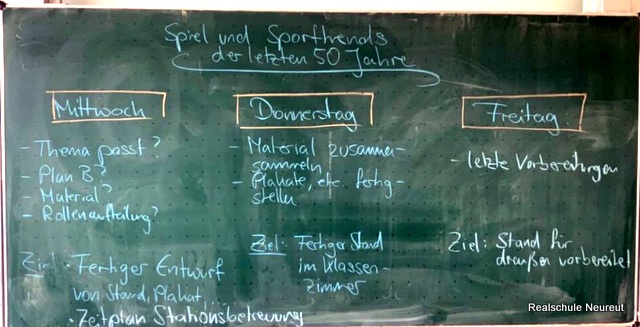 Spiel und Sporttrends
der letzten 50 Jahre
Mittwoch
- Thema passt?
- Plan B?
- Material?
- Rollenaufteilung?
Ziel: Fertiger Entwurf
von Stand, Plakat, ...
• Zeitplan Stationsbetreuung
Donnerstag
- Material zusamme-
sammeln
- Plakate, etc. fertig-
stellen
Ziel: Fertiger Stand
im Klassen-
zimmer
Freitag
- letzte Vorbereitungen
Ziel: Stand für
draußen vorbereitet
Realschule Neureut